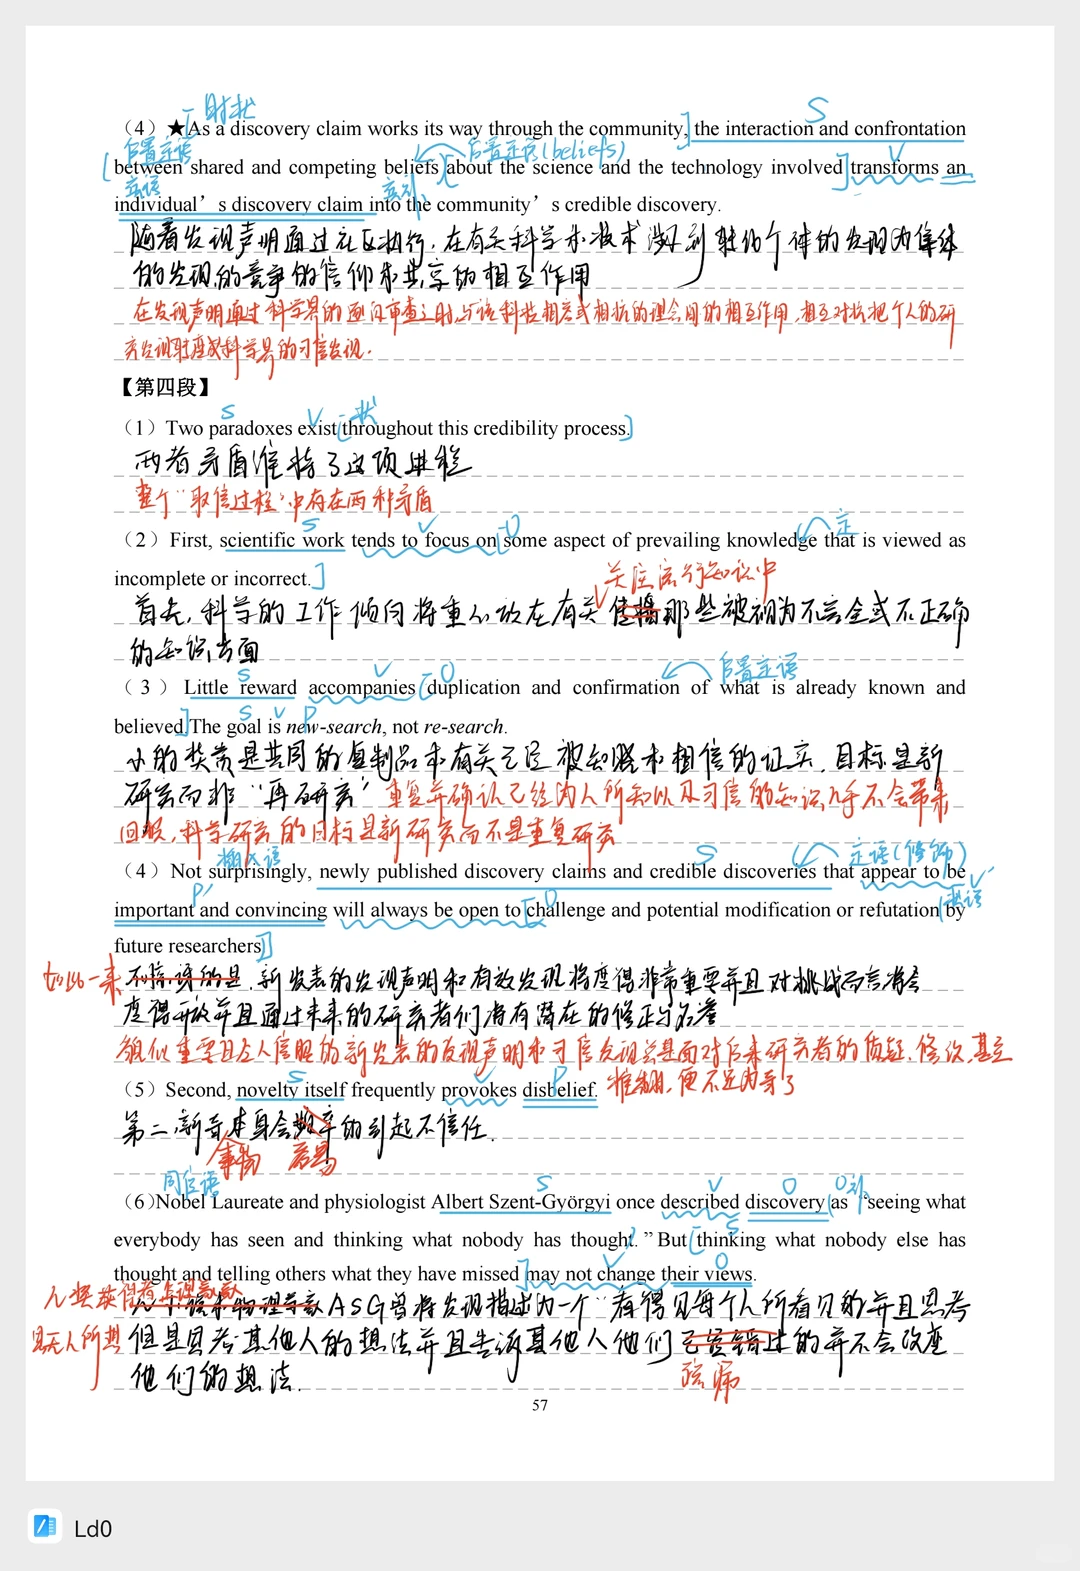 时状 S
（4）★As a discovery claim works its way through the community, the interaction and confrontation
后置定语 后置定语(beliefs) V
between shared and competing beliefs about the science and the technology involved transforms an
定语 宾补
individual’s discovery claim into the community’s credible discovery.
随着发现声明通过社区执行,在有关科学和技术涉及到转化个体的发现为集体
的发现,的竞争的信仰和共享的相互作用
在发现声明通过科学界的逐门审查之时,与该科技相关或相抗的理念间的相互作用,相互对抗把个人的研
究发现转变成科学界的可信发现.
【第四段】
S V 状
（1）Two paradoxes exist throughout this credibility process.
两者矛盾维持了这项进程
整个“取信过程”中存在两种矛盾
S V O 定
（2）First, scientific work tends to focus on some aspect of prevailing knowledge that is viewed as
incomplete or incorrect.
关注流行知识中
首先,科学的工作倾向将重心放在有关 那些被视为不完全或不正确
的知识方面
S V O 后置定语
（3）Little reward accompanies duplication and confirmation of what is already known and
S V P
believed. The goal is new-search, not re-search.
小的奖赏是共同的复制品和有关已经被知晓和相信的证实.目标是新
研究而非“再研究”
重复并确认已经为人所知以及可信的知识几乎不会带来
回报,科学研究的目标是新研究而不是重复研究
插入语 S 定语(修饰)
（4）Not surprisingly, newly published discovery claims and credible discoveries that appear to be
P V O 状语
important and convincing will always be open to challenge and potential modification or refutation by
future researchers.
如此一来 不惊讶的是,新发表的发现声明和有效发现将变得非常重要并且对挑战而言将会
变得开放并且通过未来的研究者们将有潜在的修正与
貌似重要且令人信服的新发表的发现声明和可信发现总是面对后来研究者的质疑,修改,甚至
推翻,便不足为奇了
S V P
（5）Second, novelty itself frequently provokes disbelief.
第二,新奇本身会频率的引起不信任.
事物 容易
同位语 S V O O补
（6）Nobel Laureate and physiologist Albert Szent-Györgyi once described discovery as “seeing what
S
everybody has seen and thinking what nobody has thought.” But thinking what nobody else has
V O
thought and telling others what they have missed may not change their views.
ASG曾将发现描述为一个“看得见每个人所看见的并且思考
见无人所想 但是思考其他人的想法并且告诉其他人他们已经错过的并不会改变
他们的想法.
疏漏
57
Ld0